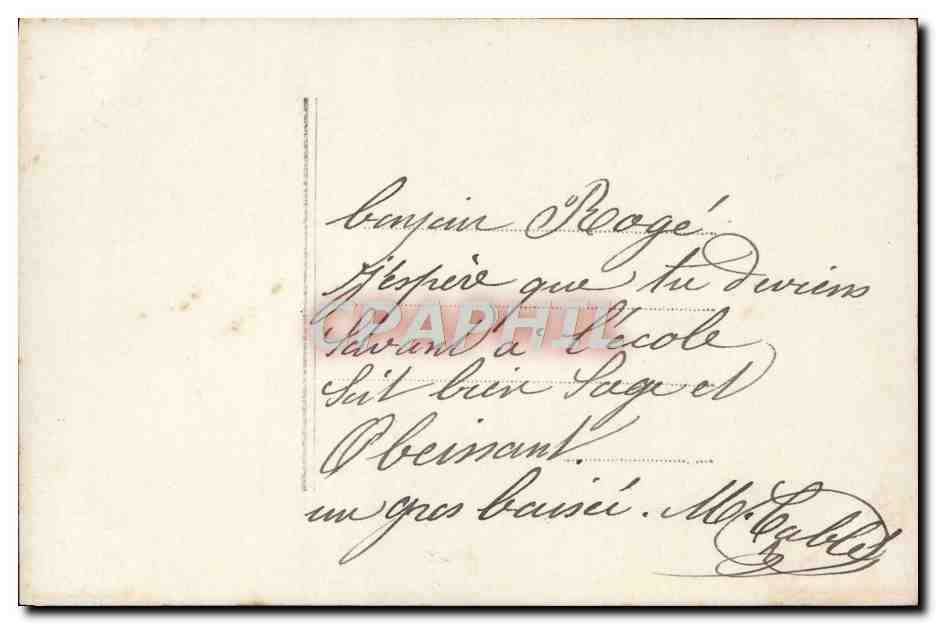 bonjour Rogé
J'espère que tu deviens
Savant à l'école
Soit bien Sage et
Obeissant.
un gros baisée. M.
CPAPHIL